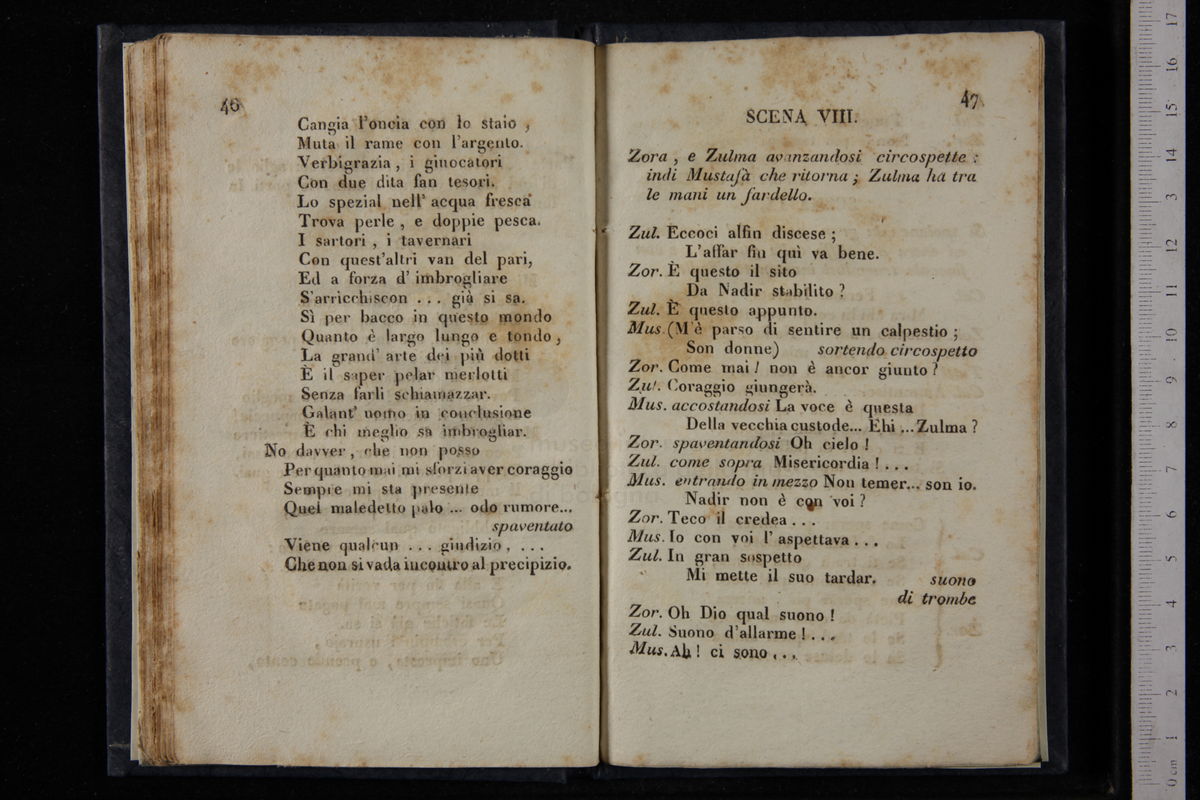 46
Cangia l'oncia con lo staio ,
Muta il rame con l'argento.
Verbigrazia , i giuocatori
Con due dita fan tesori.
Lo spezial nell' acqua fresca
Trova perle , e doppie pesca.
I sartori , i tavernari
Con quest'altri van del pari,
Ed a forza d' imbrogliare
S'arricchiscon . . . già si sa.
Sì per bacco in questo mondo
Quanto è largo lungo e tondo ,
La grand' arte dei più dotti
È il saper pelar merlotti
Senza farli schiamazzar.
Galant' uomo in conclusione
È chi meglio sa imbrogliar.
No davver , che non posso
Per quanto mai mi sforzi aver coraggio
Sempre mi sta presente
Quel maledetto palo ... odo rumore...
spaventato
Viene qualcun . . . giudizio , . . .
Che non si vada incontro al precipizio.
47
SCENA VIII.
Zora , e Zulma avanzandosi circospette :
indi Mustafà che ritorna ; Zulma ha tra
le mani un fardello.
Zul. Eccoci alfin discese ;
L'affar fin quì va bene.
Zor. È questo il sito
Da Nadir stabilito ?
Zul. È questo appunto.
Mus. (M'è parso di sentire un calpestio ;
Son donne) sortendo circospetto
Zor. Come mai ! non è ancor giunto ?
Zul. Coraggio giungerà.
Mus. accostandosi La voce è questa
Della vecchia custode... Ehi ...Zulma ?
Zor. spaventandosi Oh cielo !
Zul. come sopra Misericordia ! . . .
Mus. entrando in mezzo Non temer... son io.
Nadir non è con voi ?
Zor. Teco il credea . . .
Mus. Io con voi l' aspettava . . .
Zul. In gran sospetto
Mi mette il suo tardar. suono
di trombe
Zor. Oh Dio qual suono !
Zul. Suono d'allarme ! . . .
Mus. Ah ! ci sono . . .
museo
di bologna
0 cm 1 2 3 4 5 6 7 8 9 10 11 12 13 14 15 16 17